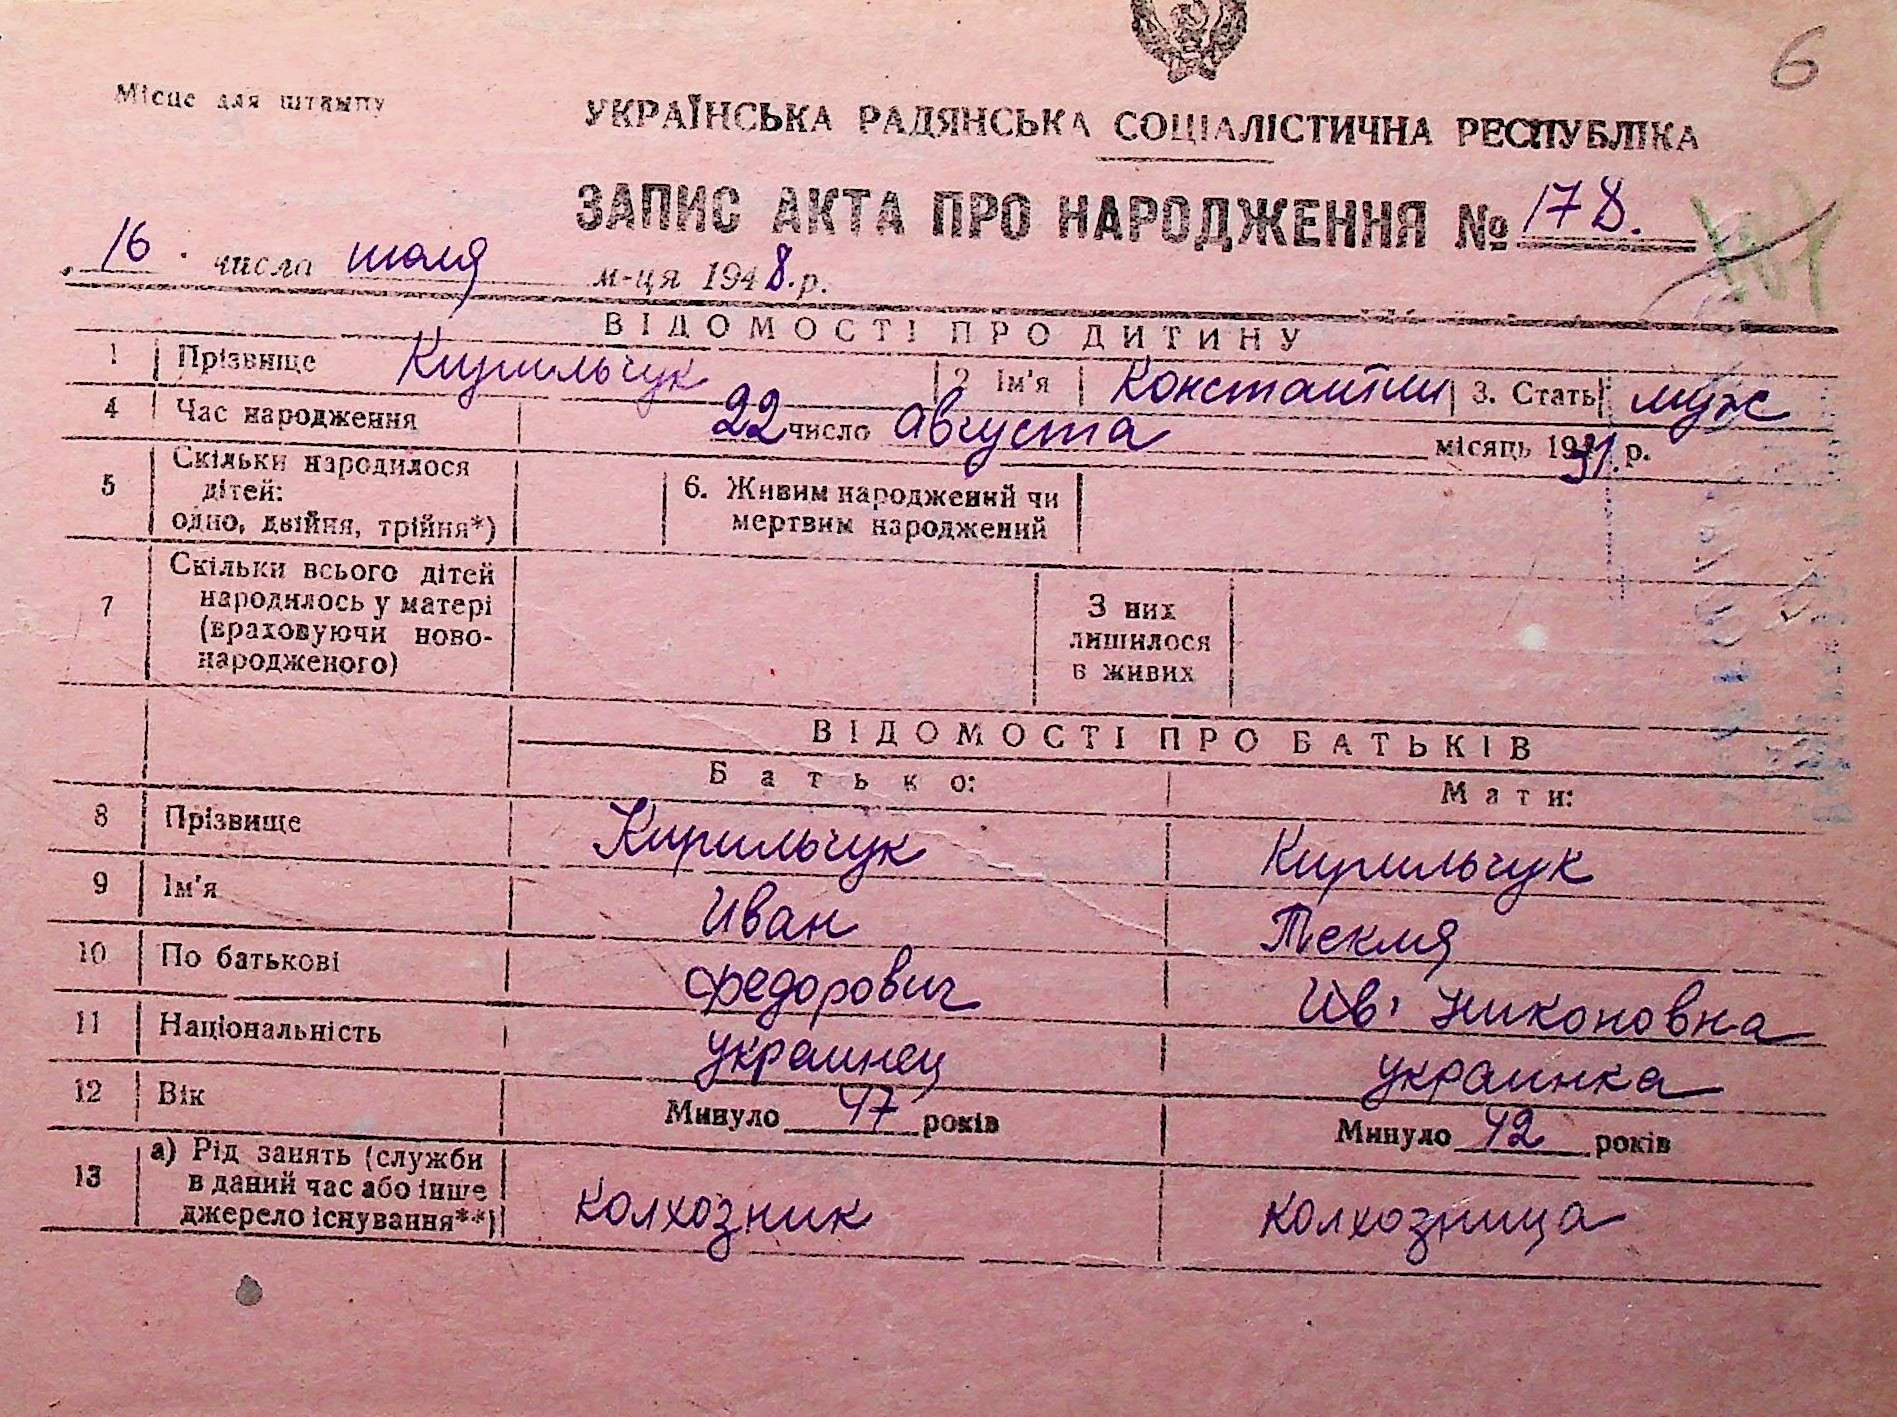 6
Місце для штампу
УКРАЇНСЬКА РАДЯНСЬКА СОЦІАЛІСТИЧНА РЕСПУБЛІКА
ЗАПИС АКТА ПРО НАРОДЖЕННЯ № 178.
16 числа июля м-ця 1948. р.
ВІДОМОСТІ ПРО ДИТИНУ
1 Прізвище Кирильчук 2 Ім'я Константин 3. Стать муж
4 Час народження 22 число Августа місяць 1931. р.
5 Скільки народилося
дітей:
одно, двійня, трійня*)
6. Живим народжений чи
мертвим народжений
7 Скільки всього дітей
народилось у матері
(враховуючи ново-
народженого)
З них
лишилося
в живих
ВІДОМОСТІ ПРО БАТЬКІВ
Батько: Мати:
8 Прізвище Кирильчук Кирильчук
9 Ім'я Иван Текля
10 По батькові Федорович Ив' Никоновна
11 Національність украинец украинка
12 Вік Минуло 47 років Минуло 42 років
13 а) Рід занять (служби
в даний час або інше
джерело існування**)
колхозник колхозница